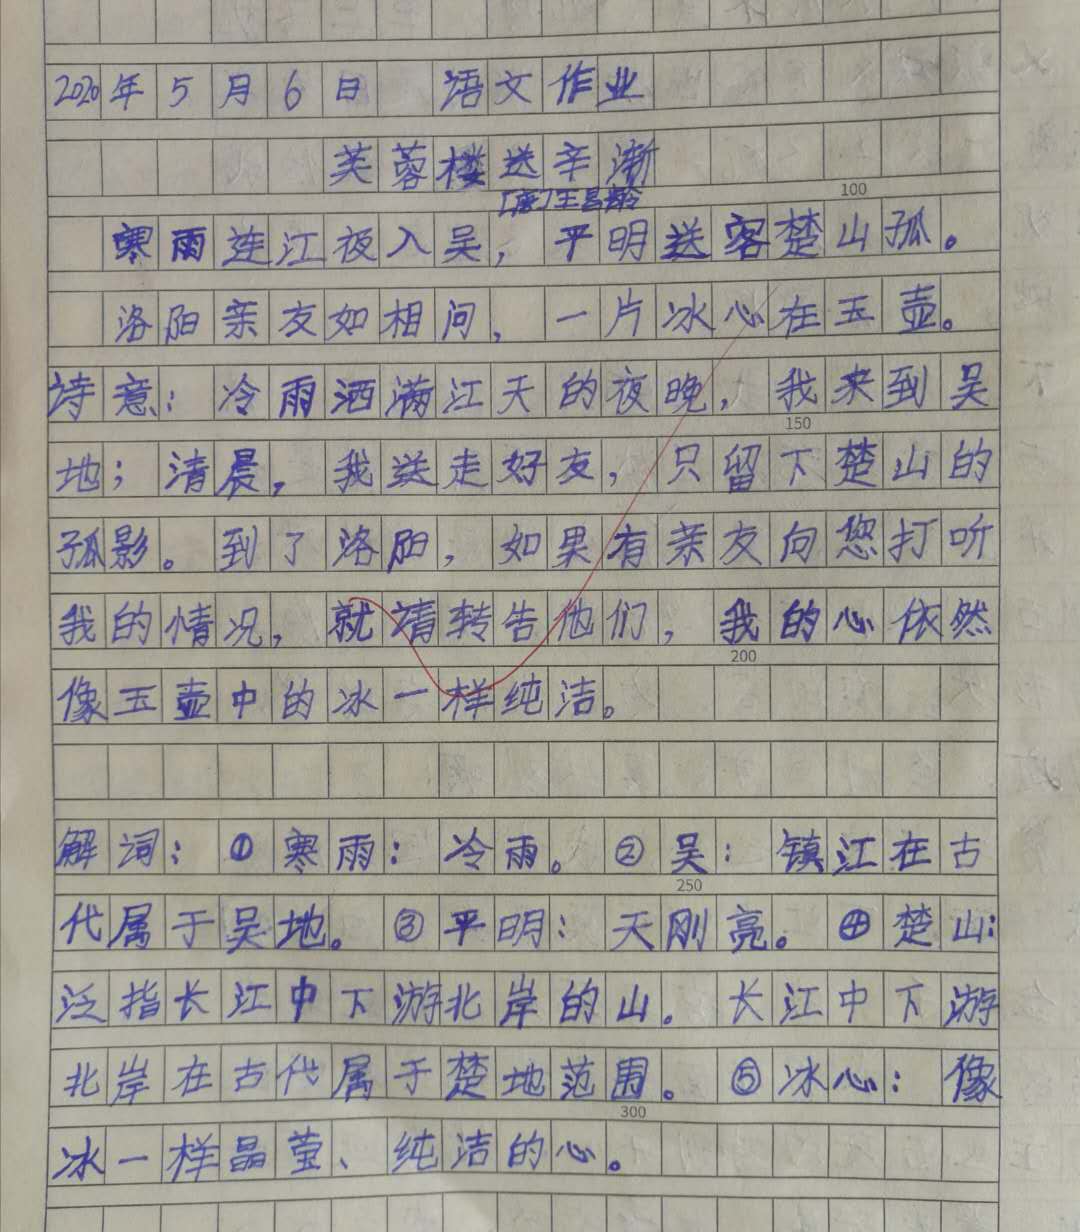 2020年5月6日 语文作业
芙蓉楼送辛渐
[唐]王昌龄
100
寒雨连江夜入吴，平明送客楚山孤。
洛阳亲友如相问，一片冰心在玉壶。
诗意：冷雨洒满江天的夜晚，我来到吴
150
地；清晨，我送走好友，只留下楚山的
孤影。到了洛阳，如果有亲友向您打听
我的情况，就请转告他们，我的心依然
200
像玉壶中的冰一样纯洁。
解词：①寒雨：冷雨。②吴：镇江在古
250
代属于吴地。③平明：天刚亮。④楚山：
泛指长江中下游北岸的山。长江中下游
北岸在古代属于楚地范围。⑤冰心：像
300
冰一样晶莹、纯洁的心。